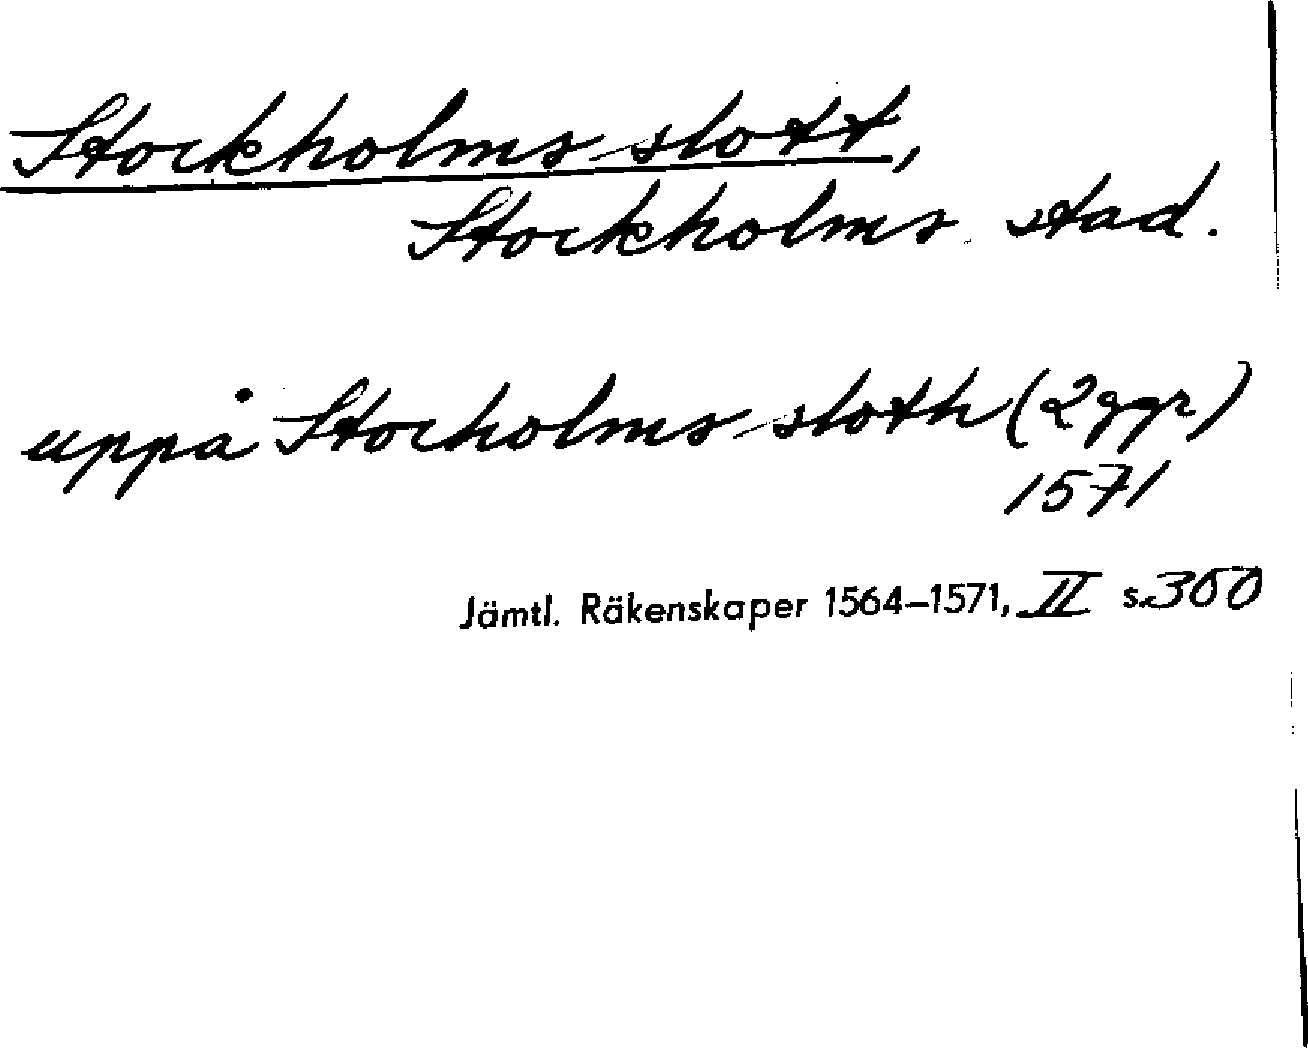 Stockholms slott,
Stockholms stad.
uppå Stocholms sloth (2 ggr)
1571
Jämtl. Räkenskaper 1564–1571, II s. 360